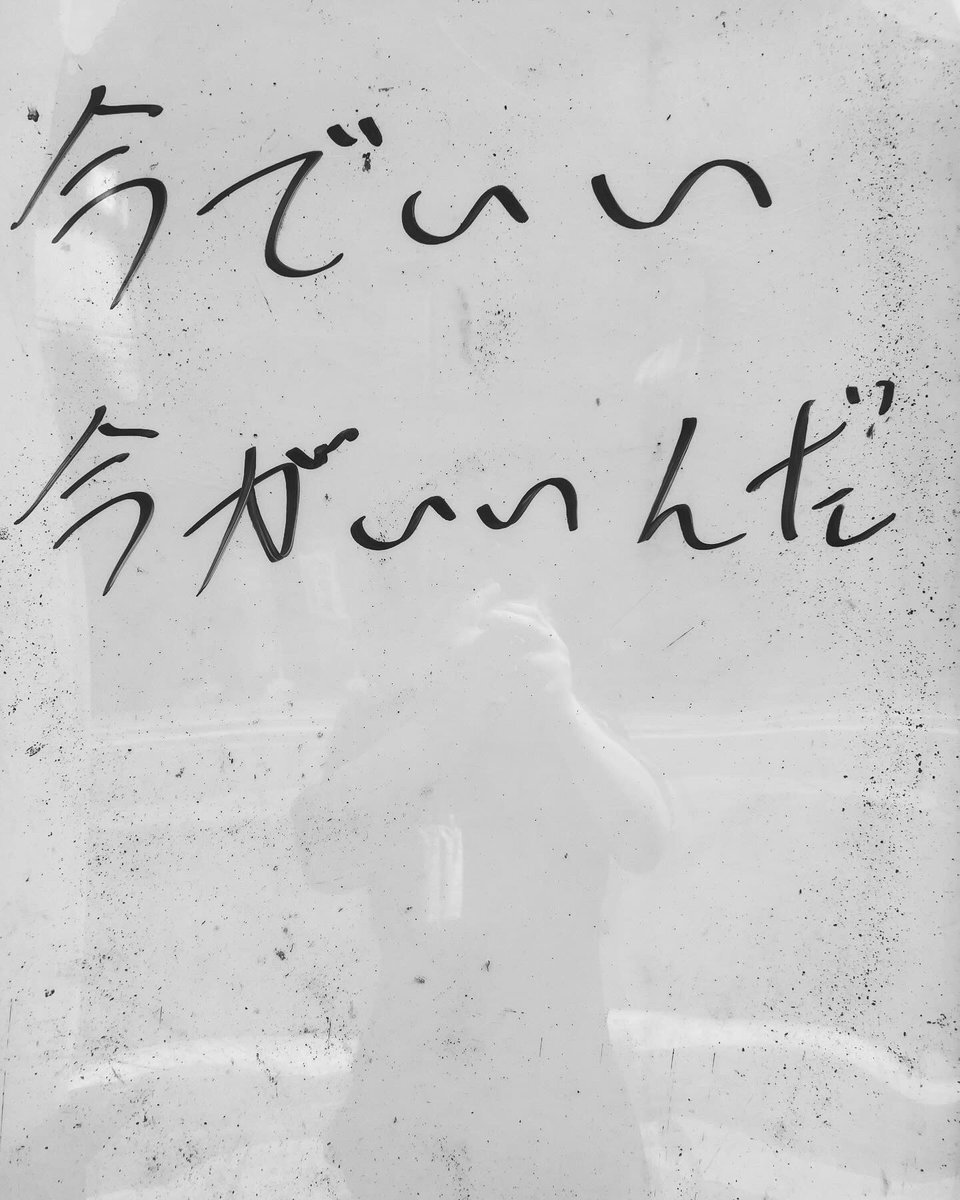 今でいい
今がいいんだ